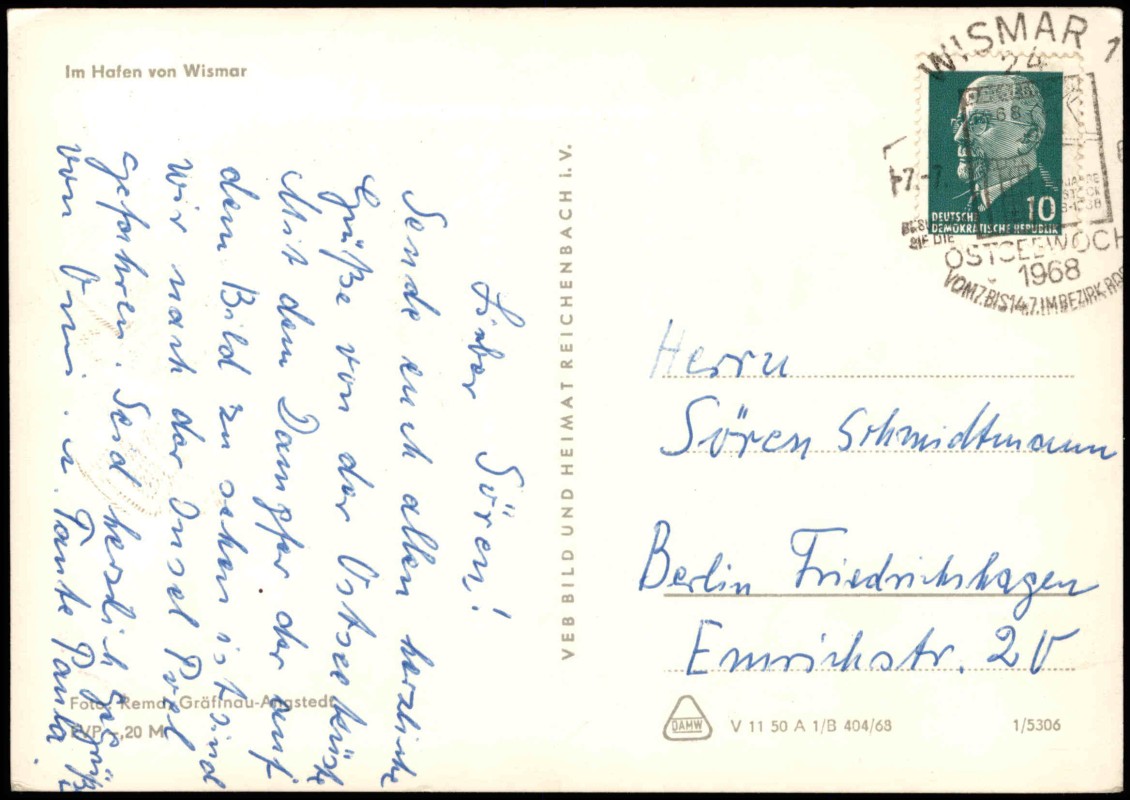 Im Hafen von Wismar
Lieber Sören!
Sende euch allen herzliche
Grüße von der Ostseeküste
Mit dem Dampfer der auf
dem Bild zu sehen ist sind
wir nach der Insel Poel
gefahren. Seid herzlich gegrüßt
von Omi. u. Tante Paula.
Foto: Remd, Gräfinau-Angstedt
EVP –,20 M
VEB BILD UND HEIMAT REICHENBACH I. V.
WISMAR 1
24
-7.-7.
DEUTSCHE
DEMOKRATISCHE REPUBLIK
10
SIE DIE
OSTSEEWOCH
1968
VOM 7. BIS 14.7. IM BEZIRK RO
Herrn
Sören Schmidtmann
Berlin Friedrichshagen
Emrichstr. 2 V
DAMW
V 11 50 A 1/B 404/68
1/5306